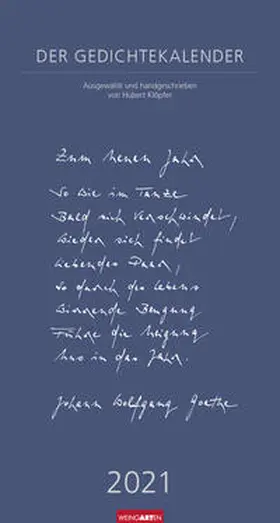 DER GEDICHTEKALENDER
Ausgewählt und handgeschrieben
von Hubert Klöpfer
Zum neuen Jahr
So wie im Tanze
Bald sich verschwindet,
Wieder sich findet
Liebendes Paar,
So durch des Lebens
Wirrende Beugung
Führe die Neigung
Uns in das Jahr.
Johann Wolfgang Goethe
2021
WEINGARTEN